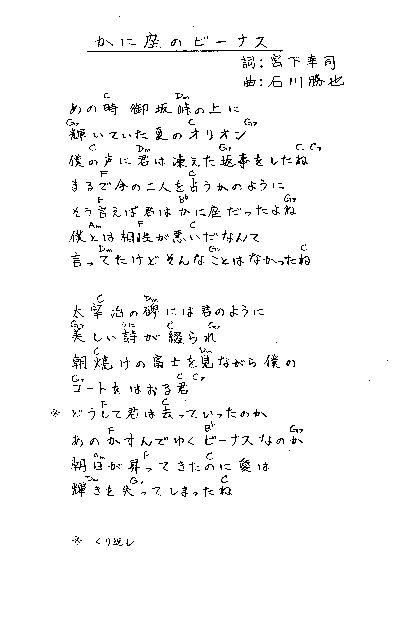 かに座のビーナス
詞:宮下幸司
曲:石川勝也
C Dm
あの時 御坂峠の上に
G7 C G7
輝いていた夏のオリオン
C Dm G7 C C7
僕の声に君は凍えた返事をしたね
F C
まるで今の二人を占うかのように
F B♭ G7
そう言えば君はかに座だったよね
Am F C
僕とは相性が悪いだなんて
Dm G7 C
言ってたけどそんなことはなかったね
C Dm
太宰治の碑には君のように
G7 うた C G7
美しい詩が綴られ
C Dm
朝焼けの富士を見ながら僕の
G7 C C7
コートをはおる君
F C
※ どうして君は去っていったのか
F B♭ G7
あのかすんでゆくビーナスなのか
Am F C
朝日が昇ってきたのに愛は
Dm G7 C
輝きを失ってしまったね
※ くり返し